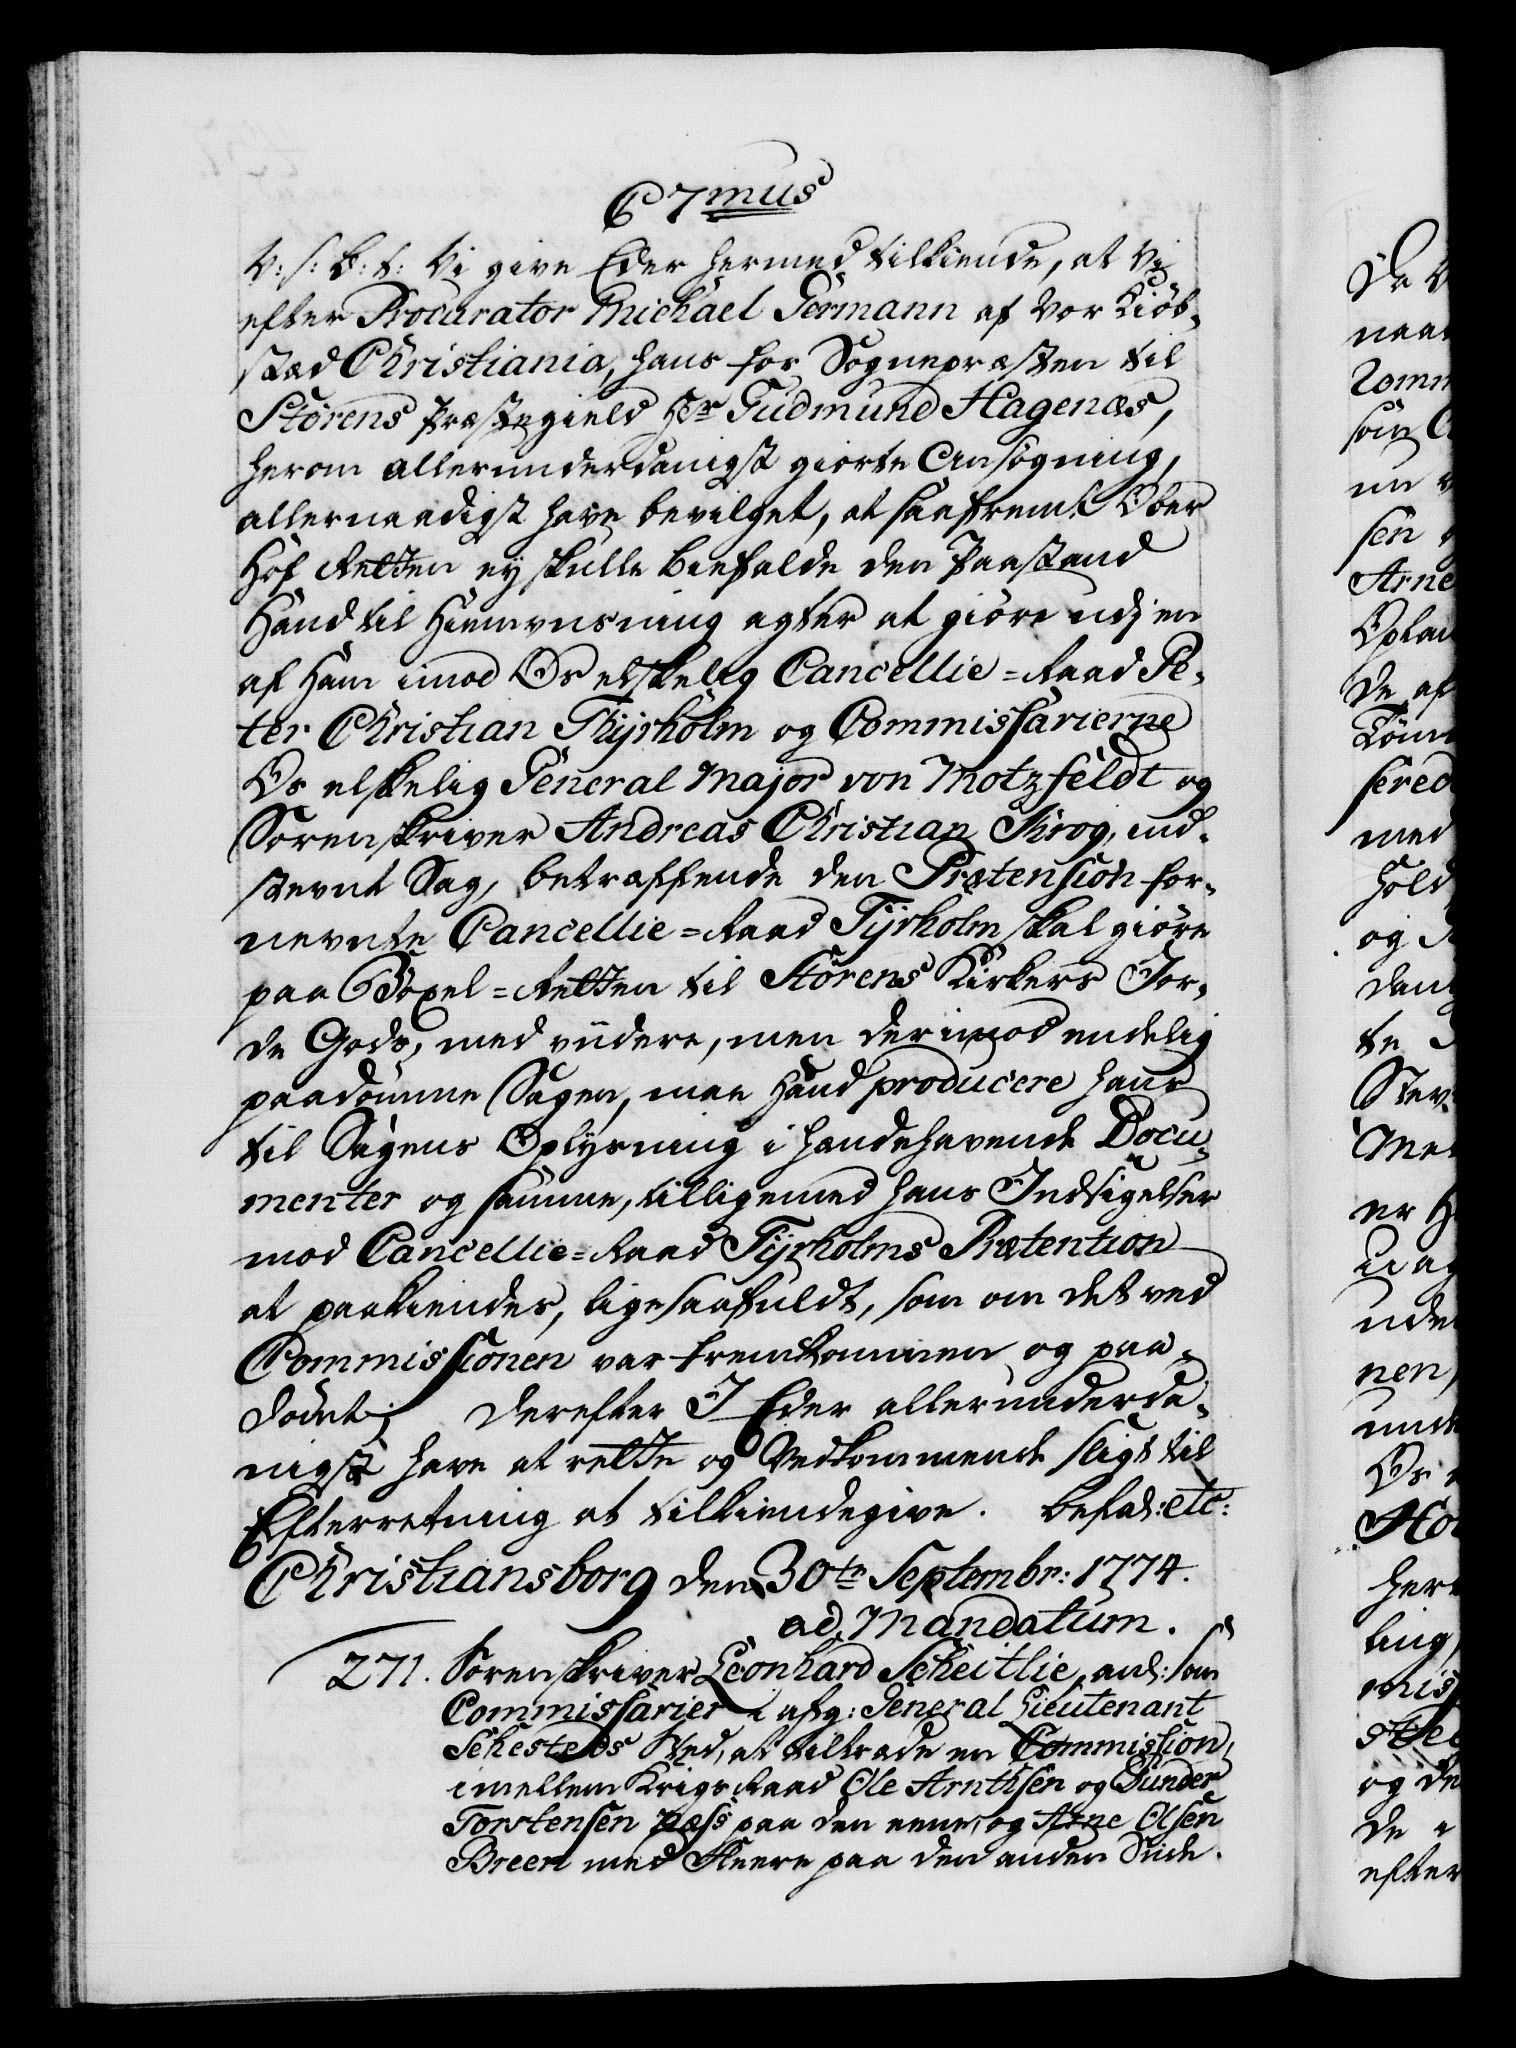 C7mus
V: s: B: t: Vi give Eder hermed tilkiende, at Vi
efter Procurator Michael Germann af vor Kiöb-
stæd Christiania, hans for Sognepræsten til
Störens Præstegield Hr Gudmund Hagenæs,
herom allerunderdanigst giorte Ansögning,
allernaadigst have bevilget, at saafremt Ober
Hof Retten ey skulle biefalde den Paastand
Hand til Hiemvisning agter at giöre udj en
af Ham imod Os elskelig Cancellie-Raad Pe-
ter Christian Thyrholm og Commissarierne
Os elskelig General Major von Motzfeldt og
Sorenskriver Andreas Christian Krog, ind-
stevnt Sag, betræffende den Prætension for-
nevnte Cancellie-Raad Tyrholm skal giöre
paa Böxel-Retten til Störens Kirkers Jor-
de Gods, med viidere, men derimod endelig
paadömme Sagen, maa Hand producere hans
til Sagens Oplysning i hændehavende Docu-
menter og samme, tilligemed hans Indsigelser
mod Cancellie-Raad Tyrholms Prætention
at paakiendes, ligesaafuldt, som om det ved
Commissionen var fremkommen og paa-
dödmt; Derefter I Eder allerunderda-
nigst have at rette og Vedkommende sligt til
Efterretning at tilkiendegive. Befal: etc:
Christiansborg den 30te Septembr: 1774.
ad Mandatum.
271. Sorenskriver Leonhard Scheitlie, and: som
Commissarier i afg: General Lieutenant
Sehesteds Sted, at tiltræde en Commission,
imellem Krigs Raad Ole Arntsen og Gunder
Torstensen Næss paa den eene, og Arne Olsen
Breen med Fleere paa den anden Side.
De
naad
Comm
som
nu
sen
Arne
Oplan
de af
sered
med
hold
og
te
Stev
er
uden
nen,
unde
Os
her
ling,
mis
sted
og de
de
efter